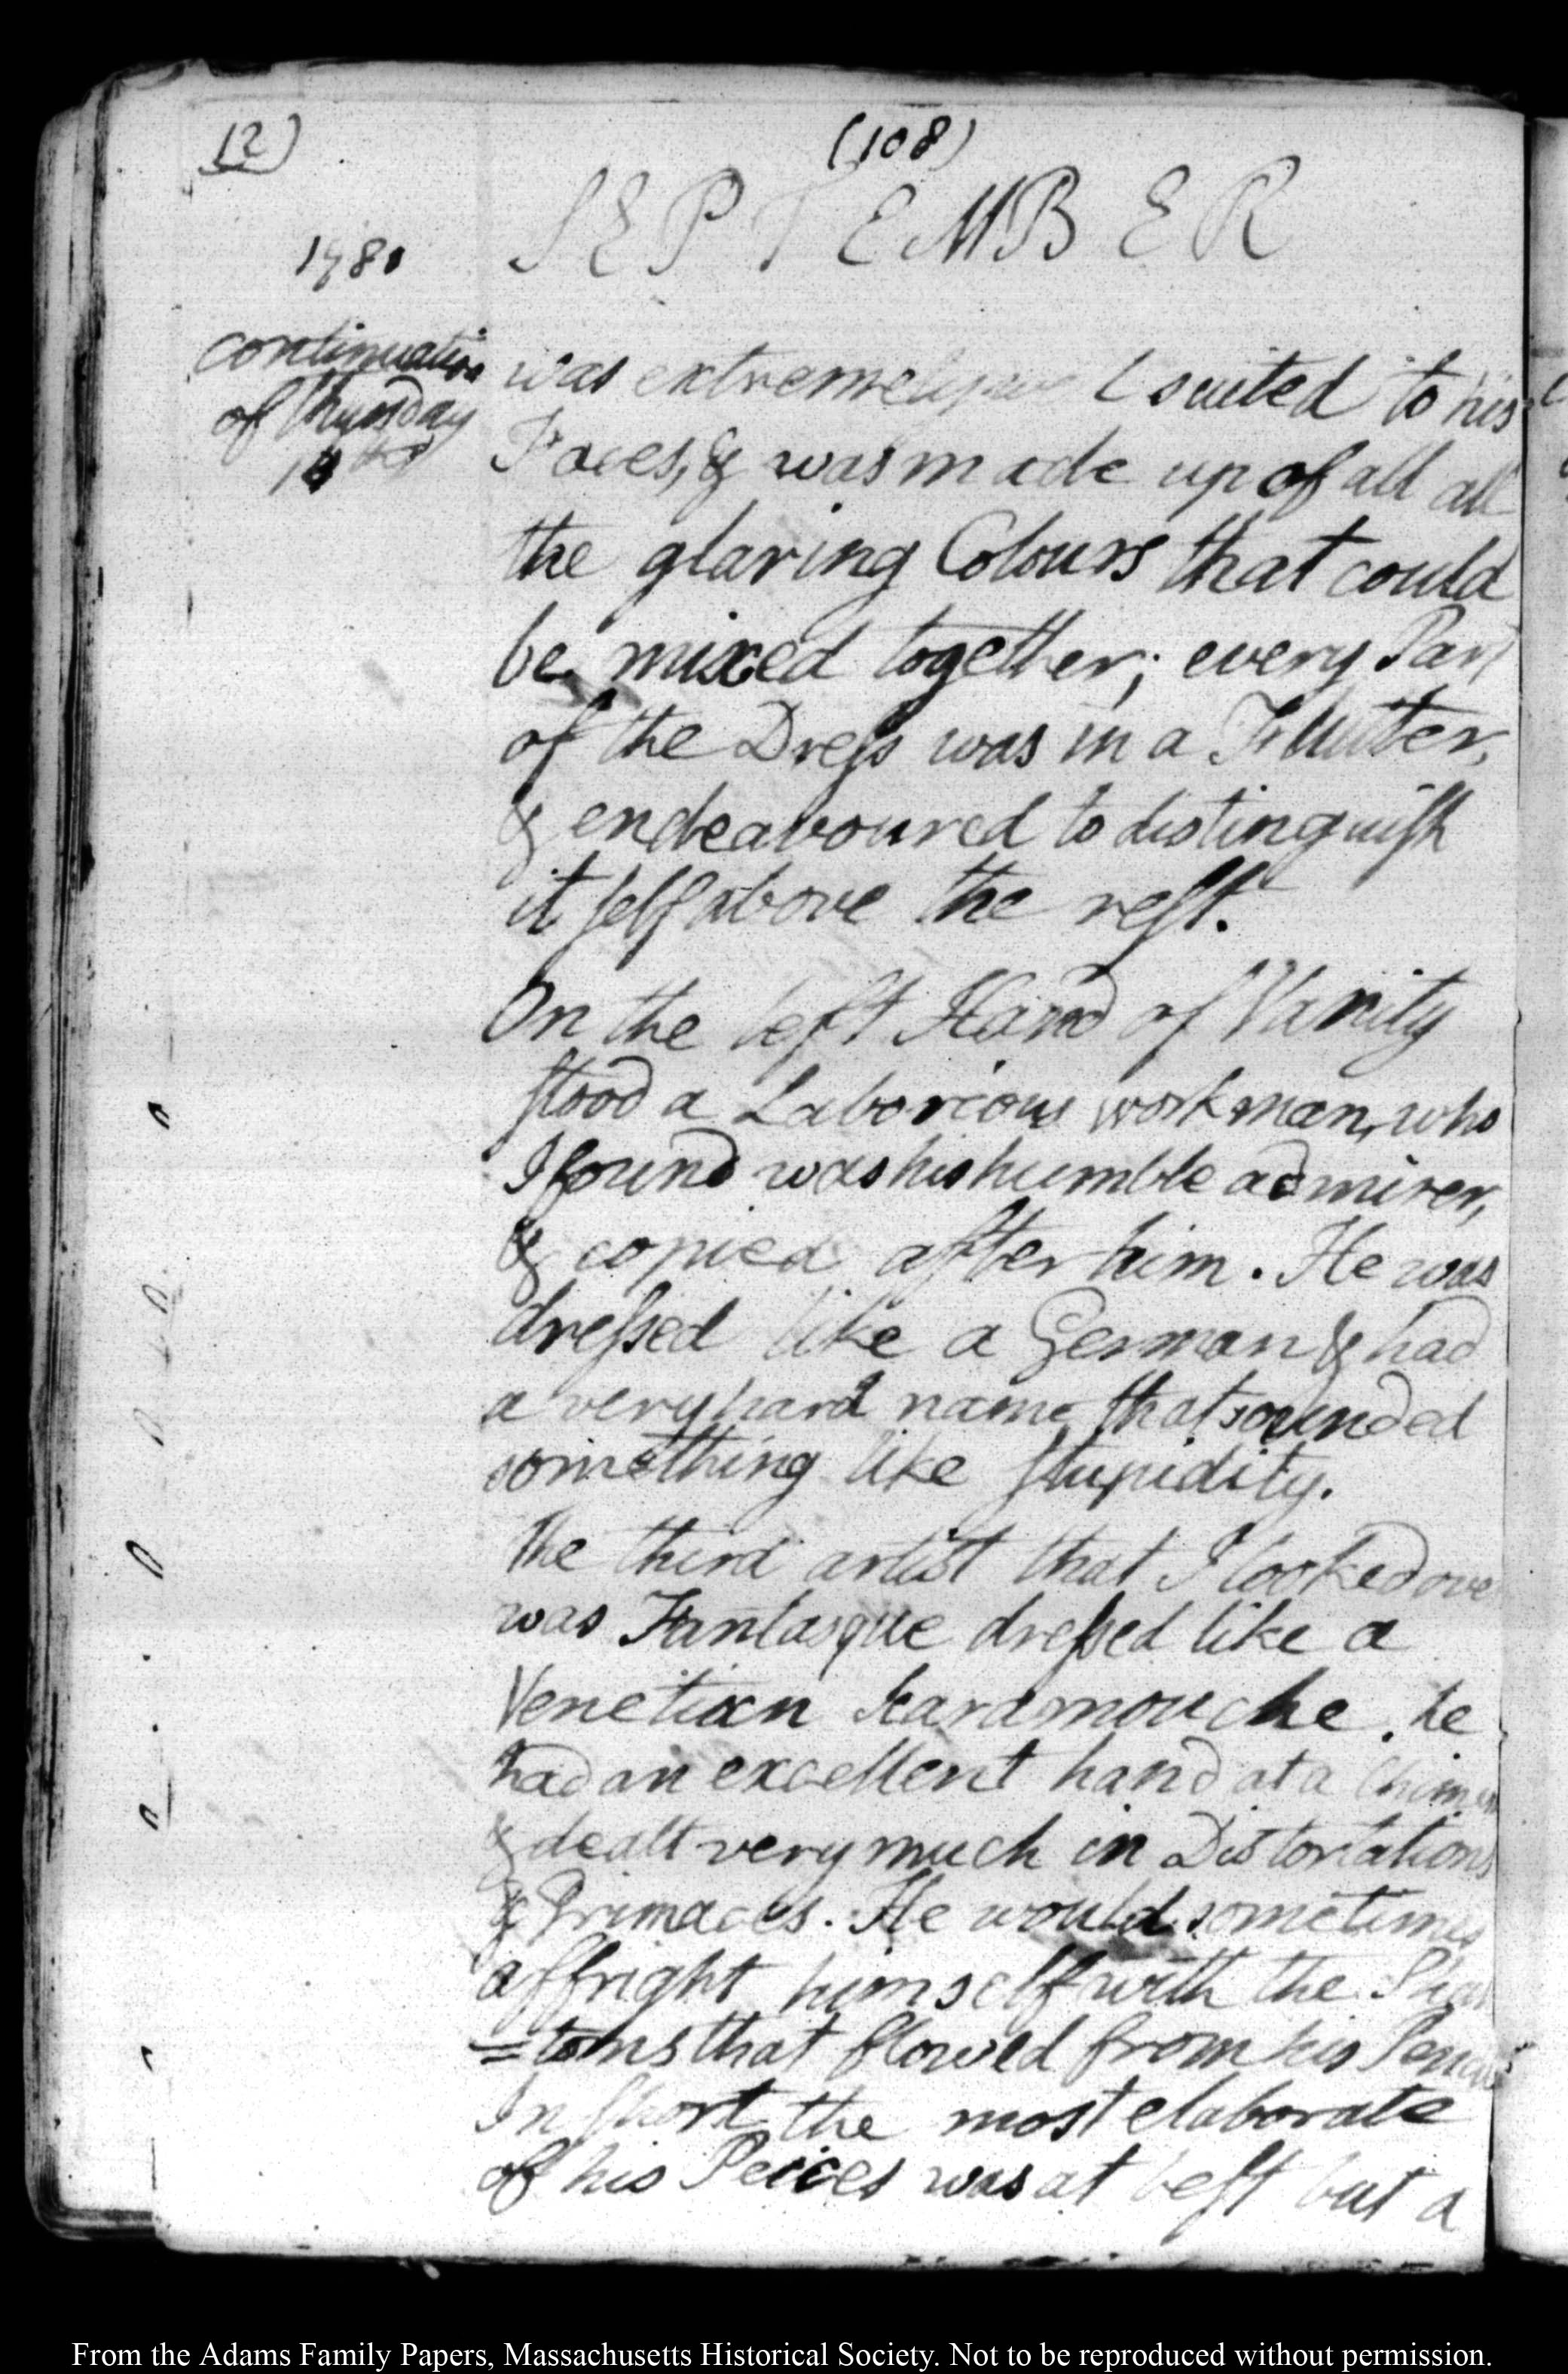 12)
(108)
SEPTEMBER
1780
continuation
of thursday
was extremely suited to his
Faces, & was made up of all all
the glaring Colours that could
be mixed together; every Part
of the Dreſs was in a Flutter,
& endeavoured to distinguiſh
it ſelf above the reſt.
On the left Hand of Vanity
ſtood a Laborious workman, who
I found was his humble admirer,
& copied after him. He was
dreſsed like a German & had
a very hard name that sounded
something like ſtupidity.
The third artist that I looked over
was Fantasque dreſsed like a
Venetian Scaramouche. he
had an excellent hand at a
& dealt very much in Distortations
& Grimaces. He would sometimes
affright himself with the Phan
=toms that flowed from his
In ſhort the most elaborate
of his Peices was at beſt but a
From the Adams Family Papers, Massachusetts Historical Society. Not to be reproduced without permission.